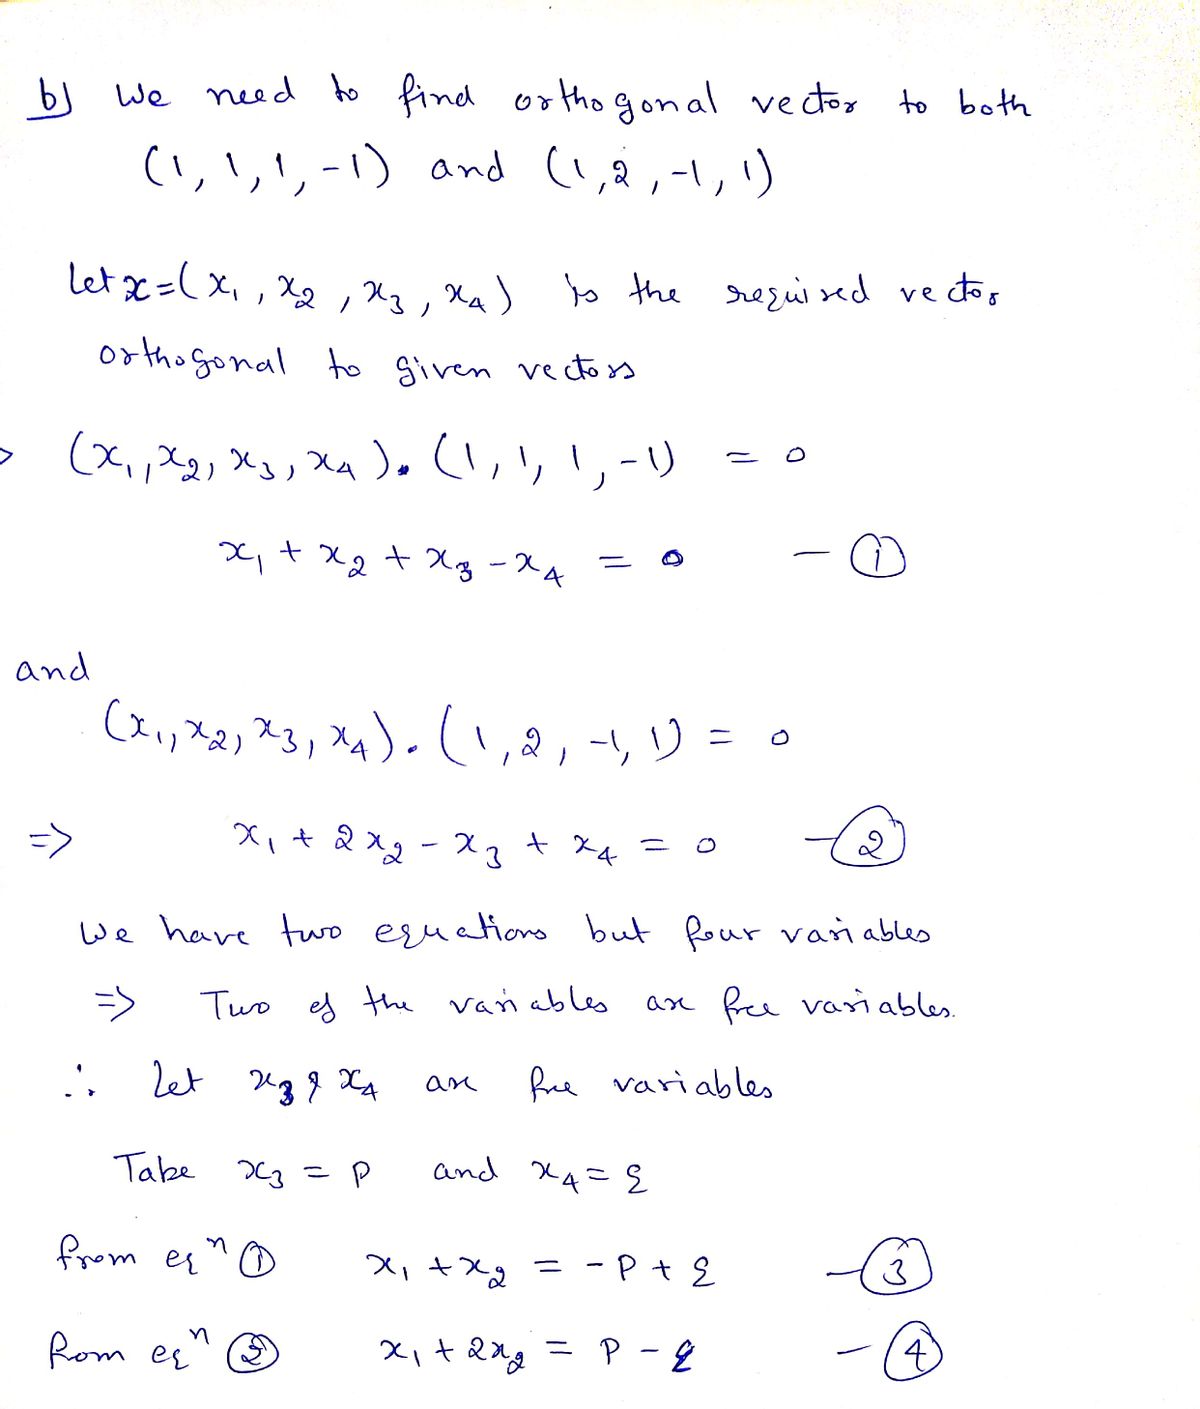 b) We need to find orthogonal vector to both
(1, 1, 1, -1) and (1, 2, -1, 1)
Let x = (x₁, x₂, x₃, x₄) is the required vector
orthogonal to given vectors
(x₁, x₂, x₃, x₄). (1, 1, 1, -1) = 0
x₁ + x₂ + x₃ - x₄ = 0 - ①
and
(x₁, x₂, x₃, x₄). (1, 2, -1, 1) = 0
=> x₁ + 2x₂ - x₃ + x₄ = 0 - ②
We have two equations but four variables
=> Two of the variables are free variables.
∴ Let x₃ & x₄ are free variables
Take x₃ = p and x₄ = q
from eqⁿ ① x₁ + x₂ = -p + q - ③
from eqⁿ ② x₁ + 2x₂ = p - q - ④